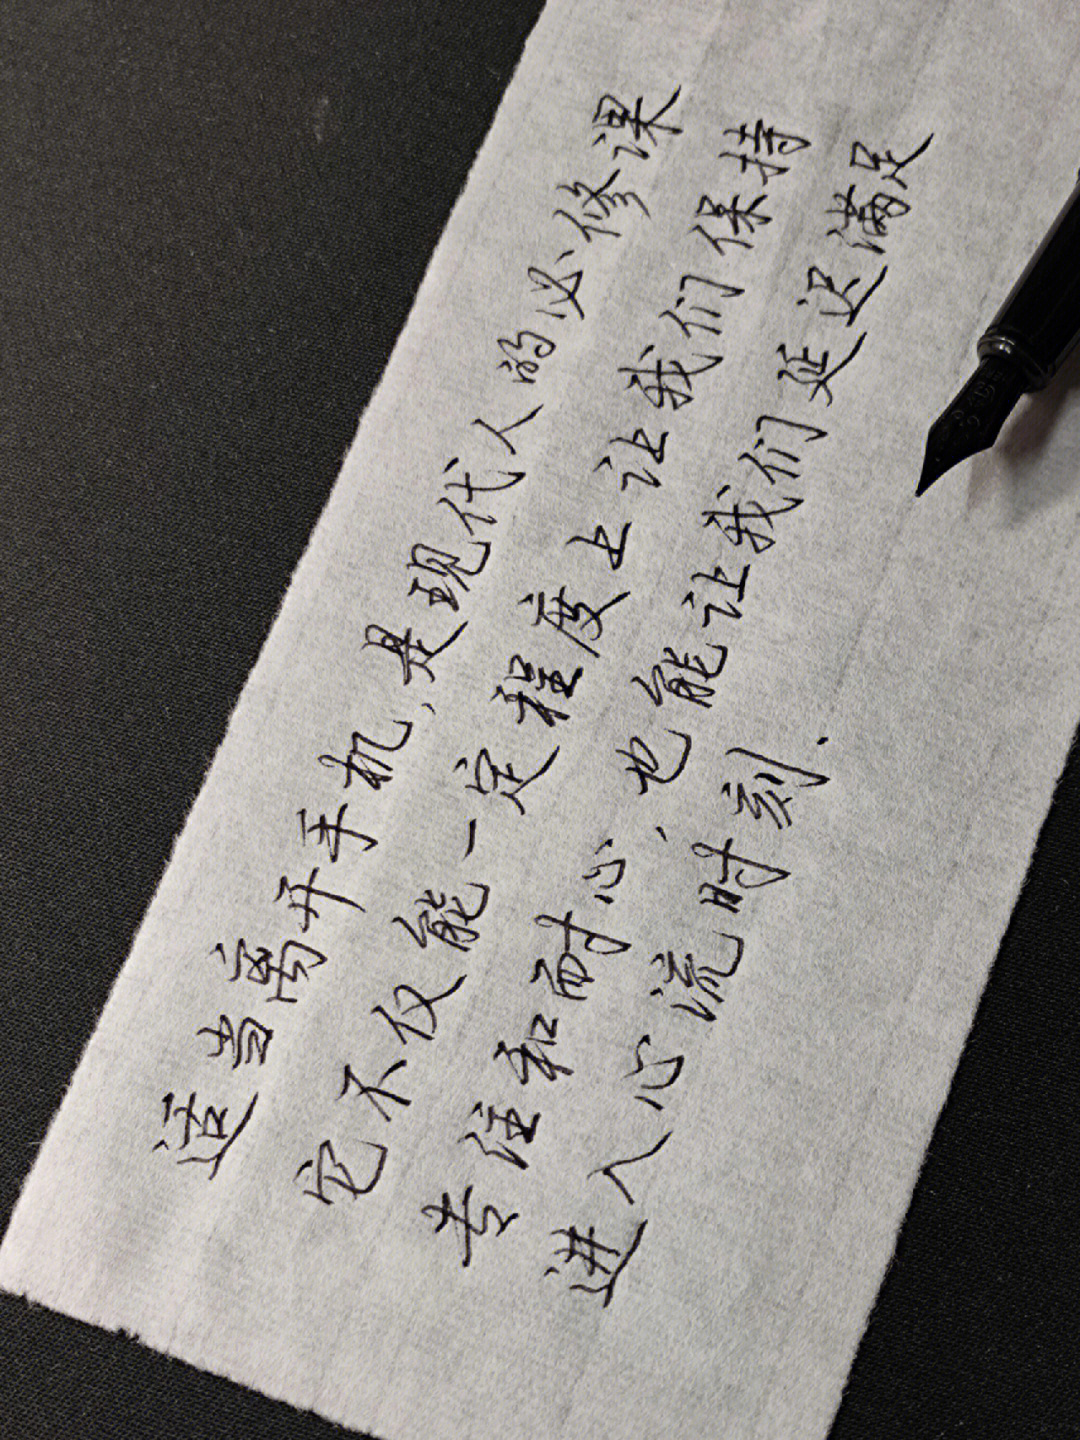 适当离开手机,是现代人的必修课
它不仅能一定程度上让我们保持
专注和耐心、也能让我们延迟满足
进入心流时刻.